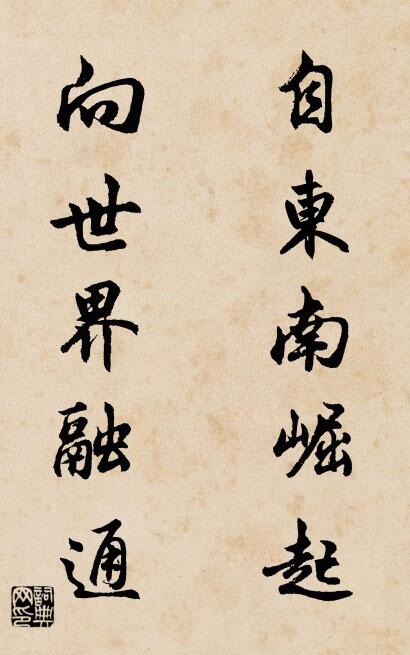 自東南崛起
向世界融通
詞典
网印